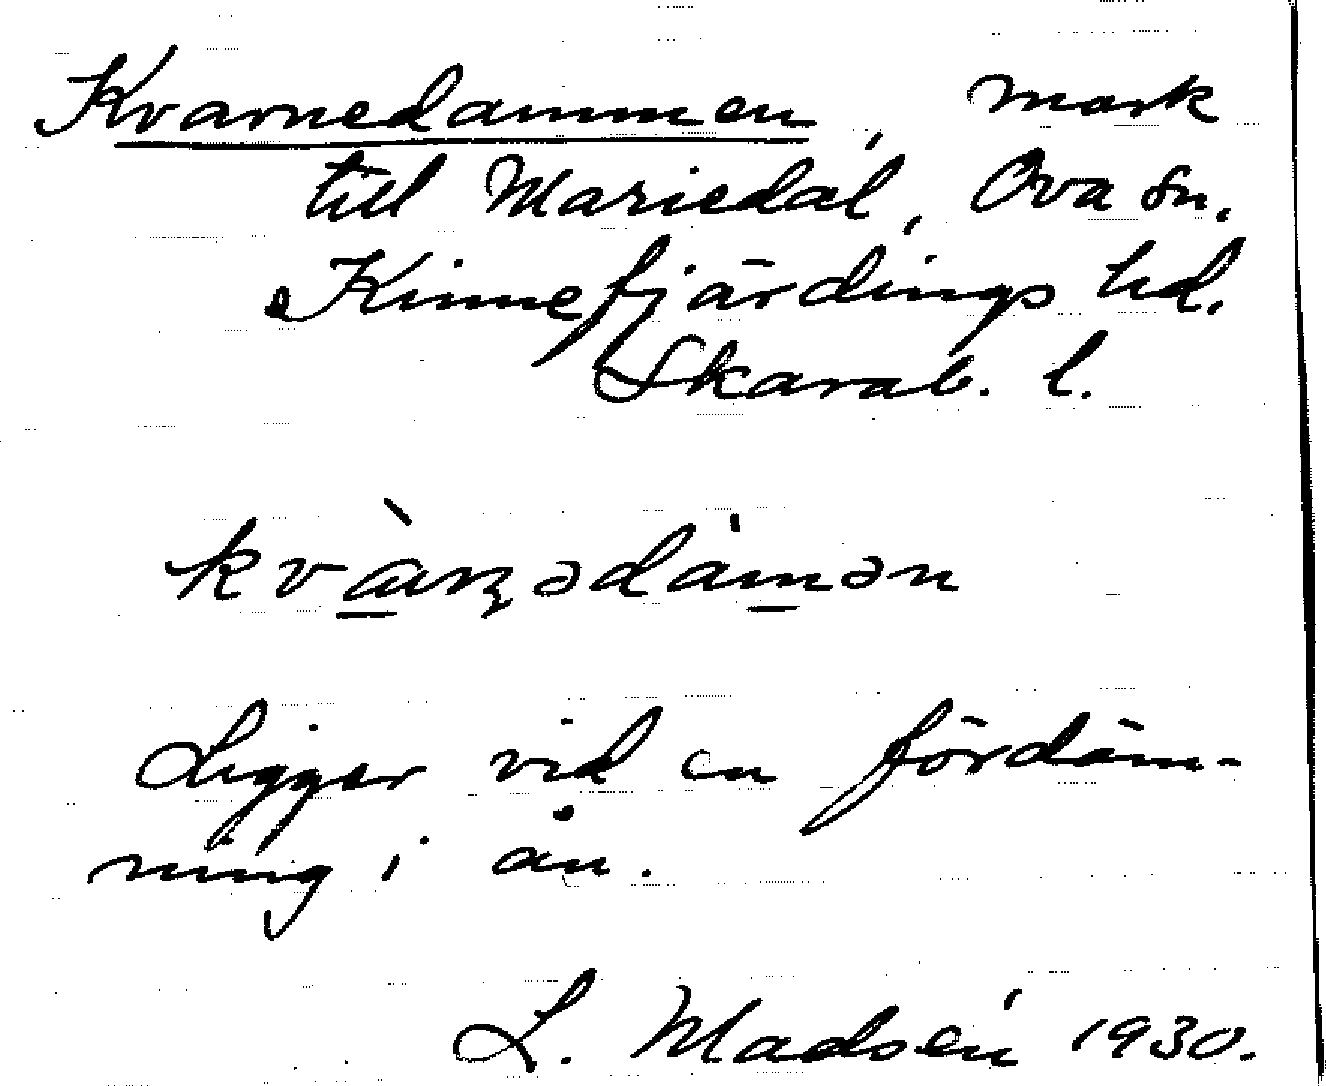 Kvarnedammen, mark
till Mariedal, Ova sn.
Kinnefjärdings hd.
Skarab. l.
kvàɳədámən
Ligger vid en fördäm-
ning i ån.
L. Madsén 1930.